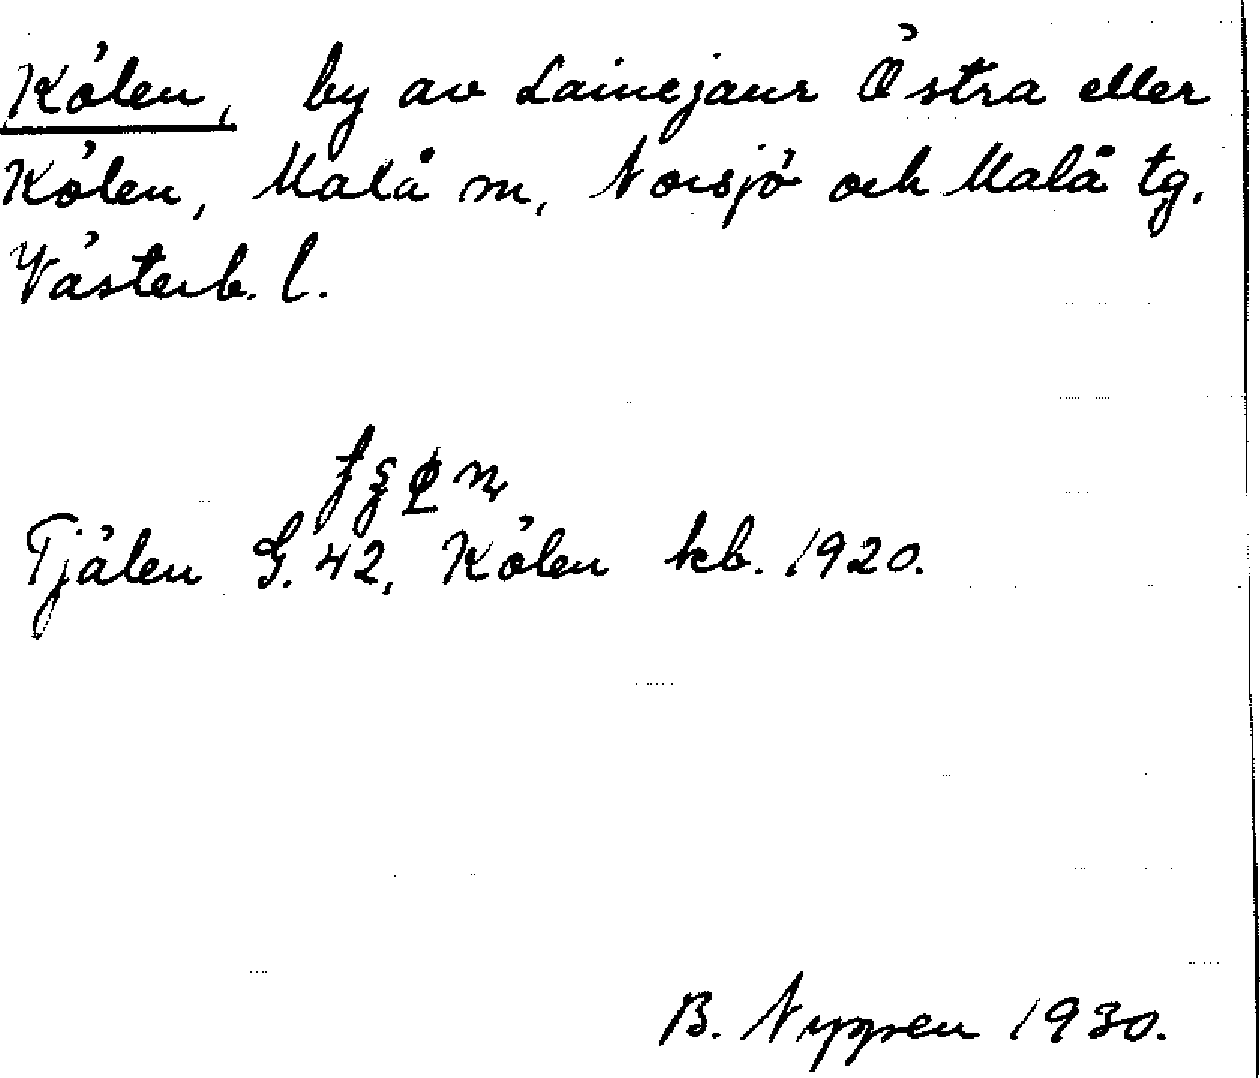 Kölen, by av Lainejaur Östra eller
Kölen, Malå sn, Norsjö och Malå tg.
Västerb. l.
Tjälen G. 42, Kölen kb. 1920.
B. Nygren 1930.